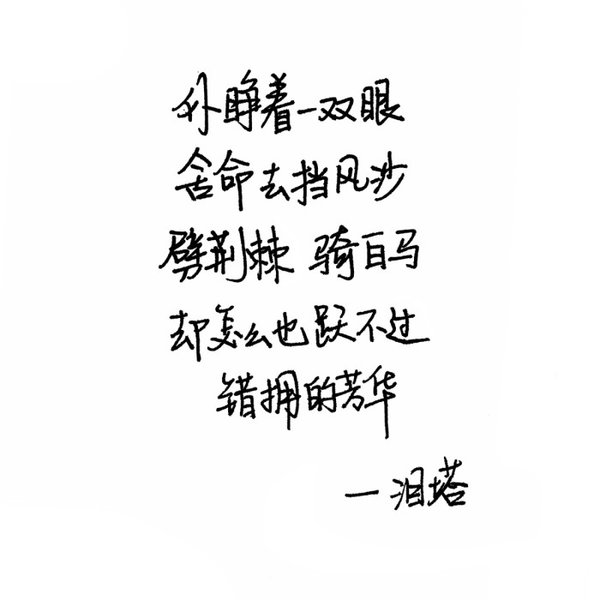 外睁着一双眼
舍命去挡风沙
劈荆棘 骑白马
却怎么也跃不过
错拥的芳华
—泪塔